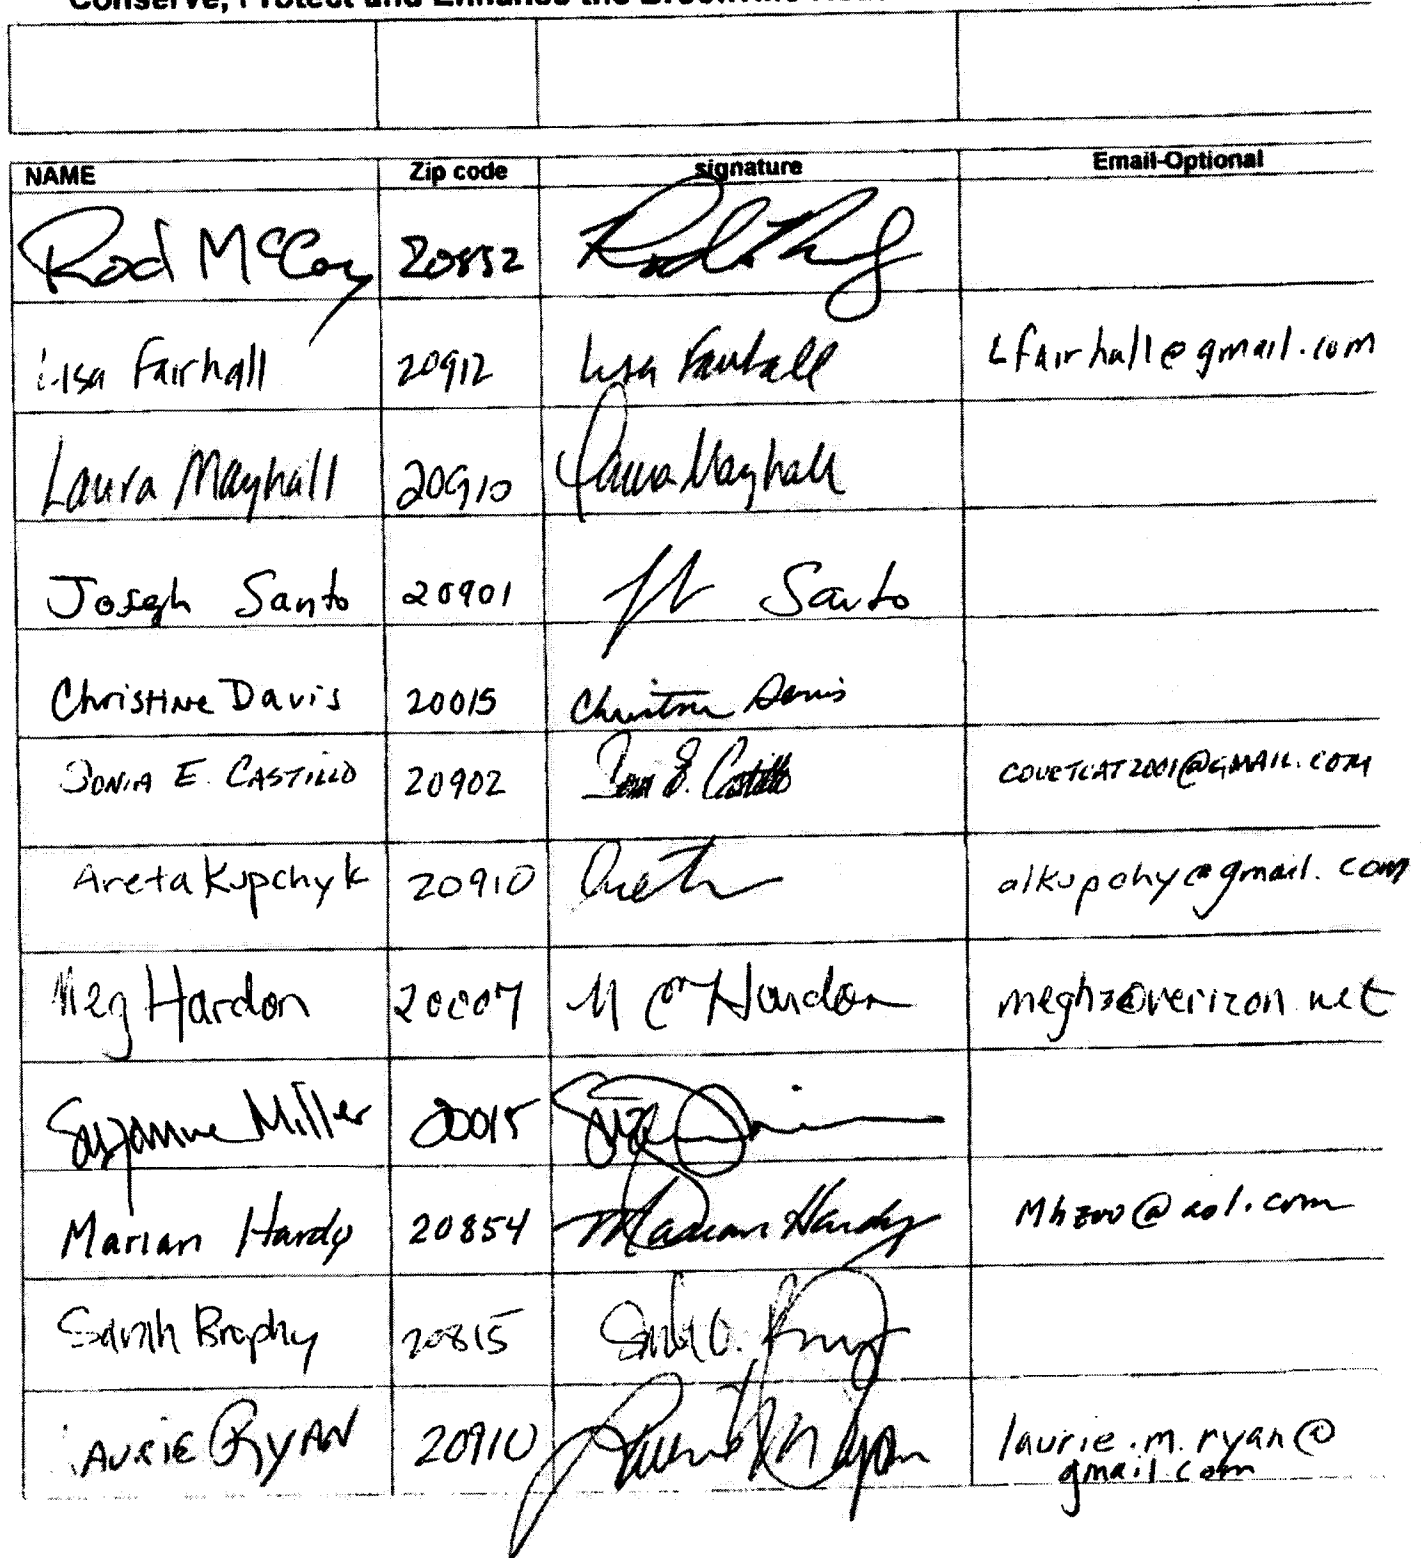 Conserve, Protect and Enhance the Brookville
NAME Zip code signature Email-Optional
Rod McCoy 20852
Lisa Fairhall 20912 Lisa Fairhall Lfairhall@gmail.com
Laura Mayhall 20910 Laura Mayhall
Joseph Santo 20901 Santo
Christine Davis 20015 Christine Davis
SONIA E. CASTILLO 20902 Sonia E. Castillo
Areta Kupchyk 20910 Areta alkupchy@gmail.com
Meg Hardon 20007 M Hardon @verizon.net
Suzanne Miller 20015
Marian Hardy 20854 Marian Hardy @aol.com
Sarah Brophy 20815
LAURIE RYAN 20910 laurie.m.ryan@
gmail.com